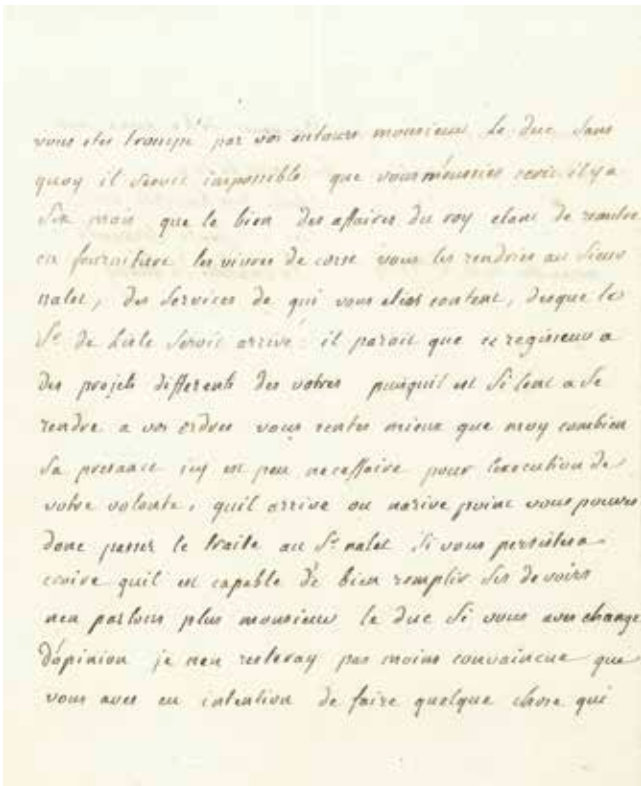 vous etes trompé par vos entours monsieur Le duc sans
quoy il seroit impossible que vous m'eussies ecrit il y a
six mois que le bien des affaires du roy etant de remettre
en fourniture les vivres de corse vous les rendries au sieur
nalet, des services de qui vous eties content, desque le
Sr. de Lisle seroit arrivé. il paroit que ce regisseur a
des projets differents des votres puisquil est si lent a se
rendre a vos ordres vous sentes mieux que moy combien
sa presance icy est peu necessaire pour l'execution de
votre volonte, quil arrive ou narive point vous pouves
donc passer le traite au Sr. nalet si vous persistes a
croire quil est capable de bien remplir ses devoirs
nen parlons plus monsieur le duc si vous aves change
d'opinion je nen resteray pas moins convaincue que
vous aves eu intention de faire quelque chose qui